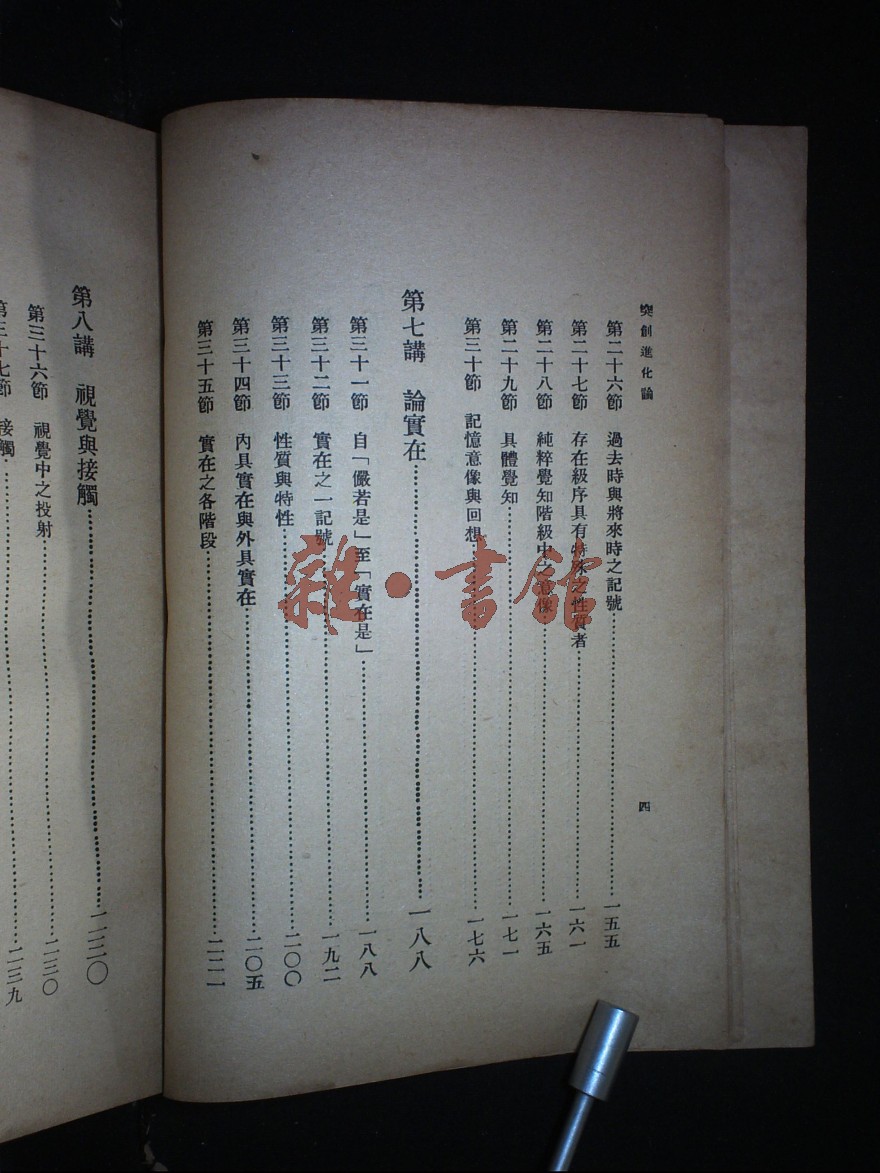 突創進化論
四
第二十六節 過去時與將來時之記號……一五五
第二十七節 存在級序具有特殊之性質者……一六一
第二十八節 純粹覺知階級中之意像……一六五
第二十九節 具體覺知……一七一
第三十節 記憶意像與回想……一七六
第七講 論實在……一八八
第三十一節 自「儼若是」至「實在是」……一八八
第三十二節 實在之一記號……一九二
第三十三節 性質與特性……二〇〇
第三十四節 內具實在與外具實在……二〇五
第三十五節 實在之各階段……二二一
第八講 視覺與接觸……二三〇
第三十六節 視覺中之投射……二三〇
第三十七節 接觸……二三九
雜·書館